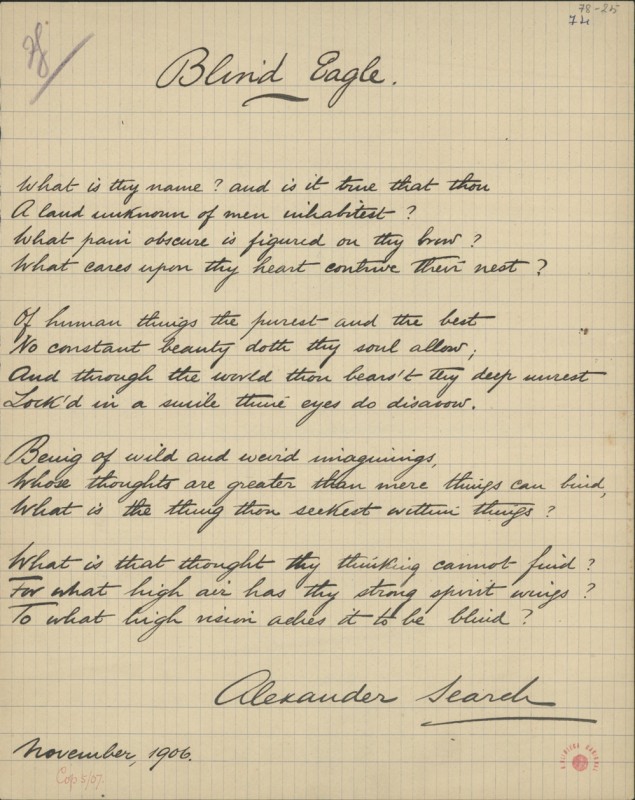 78-25
74
Blind Eagle.
What is thy name? and is it true that thou
A land unknown of men inhabitest?
What pain obscure is figured on thy brow?
What cares upon thy heart contrive their nest?
Of human things the purest and the best
No constant beauty doth thy soul allow;
And through the world thou bears't thy deep unrest
Lock'd in a smile thine eyes do disavow.
Being of wild and weird imaginings,
Whose thoughts are greater than mere things can bind,
What is the thing thou seekest within things?
What is that thought thy thinking cannot find?
For what high air has thy strong spirit wings?
To what high vision aches it to be blind?
Alexander Search
November, 1906.